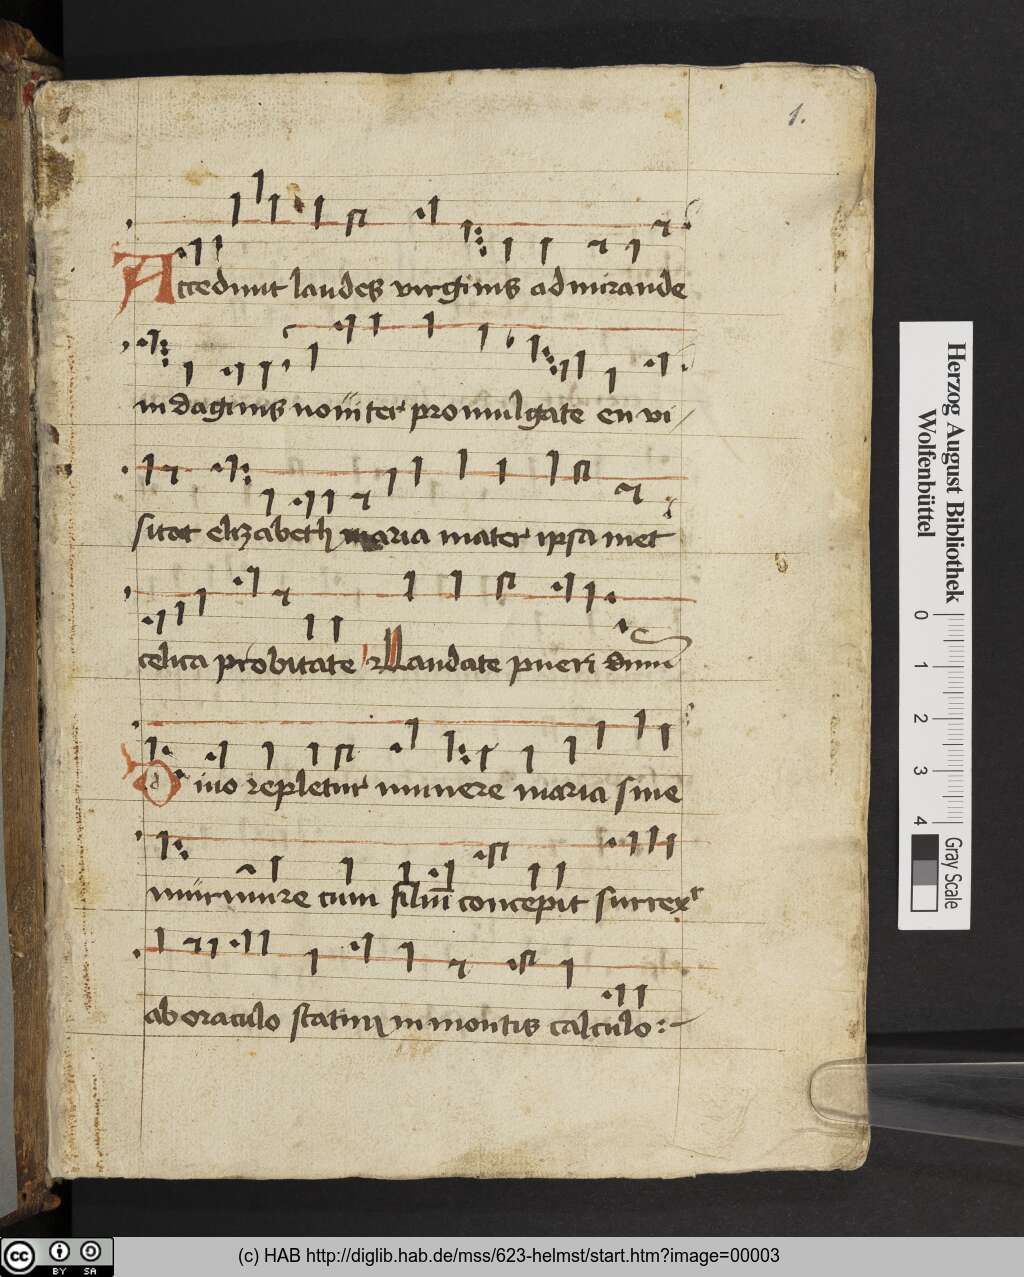 1.
Accedunt laudes virginis admirande
indaginis noviter promulgate en vi
sitat elizabeth maria mater ipsamet
celica probitate Laudate pueri dnm
Divo repletur munere maria sine
murmure cum filiū concepit surrexr
ab oraculo statim in montis calculo :-
Herzog August Bibliothek
Wolfenbüttel
0 1 2 3 4
Gray Scale
cc BY SA
(c) HAB http://diglib.hab.de/mss/623-helmst/start.htm?image=00003